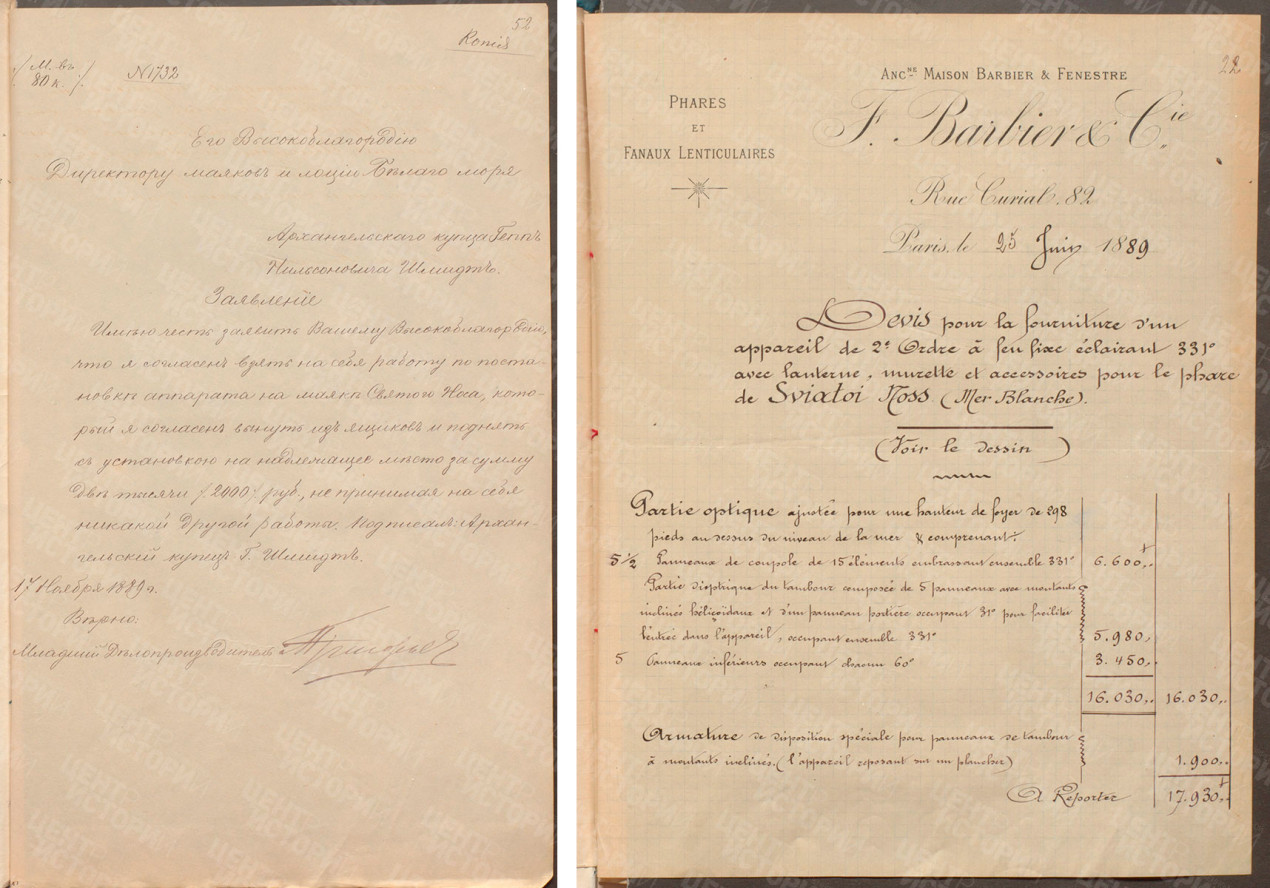 52
Копія
/ М. въ 80 к. /
N 1732
Его Высокоблагородію
Директору маяковъ и лоціи Бѣлаго моря
Архангельскаго купца
Нильсоновича Шмидтъ.
Заявленіе
Имѣю честь заявить Вашему Высокоблагородію,
что я согласенъ взять на себя работу по поста-
новкѣ аппарата на маякѣ Святой Носъ, кото-
рый я согласенъ вынуть изъ ящиковъ и поднять
съ установкою на надлежащее мѣсто за сумму
двѣ тысячи /2000/ руб., не принимая на себя
никакой другой работы. Подписалъ: Архан-
гельский купецъ Г. Шмидтъ.
17 Ноября 1889 г.
Вѣрно:
Младший Дѣлопроизводитель Григорьев
22
ANCNE MAISON BARBIER & FENESTRE
PHARES
ET
FANAUX LENTICULAIRES
F. Barbier & Cie.
Rue Curial. 82
Paris, le 25 Juin 1889
Devis pour la fourniture d'un
appareil de 2e Ordre à feu fixe éclairant 331°
avec lanterne, murette et accessoires pour le phare
de Sviatoi Noss (Mer Blanche).
(Voir le dessin)
Partie optique ajustée pour une hauteur de foyer de 298
pieds au dessus du niveau de la mer & comprenant:
5 1/2 Panneaux de coupole de 15 éléments embrassant ensemble 331° 6.600,.
Partie dioptrique du tambour composée de 5 panneaux avec montants
inclinés hélicoïdaux et d'un panneau portière occupant 31° pour faciliter
l'entrée dans l'appareil, occupant ensemble 331° 5.980,
5 Panneaux inférieurs occupant chacun 60° 3.450,.
16.030,. 16.030,.
Armature de disposition spéciale pour panneaux de tambour
à montants inclinés. (l'appareil reposant sur un plancher) 1.900,.
A Reporter 17.930,.